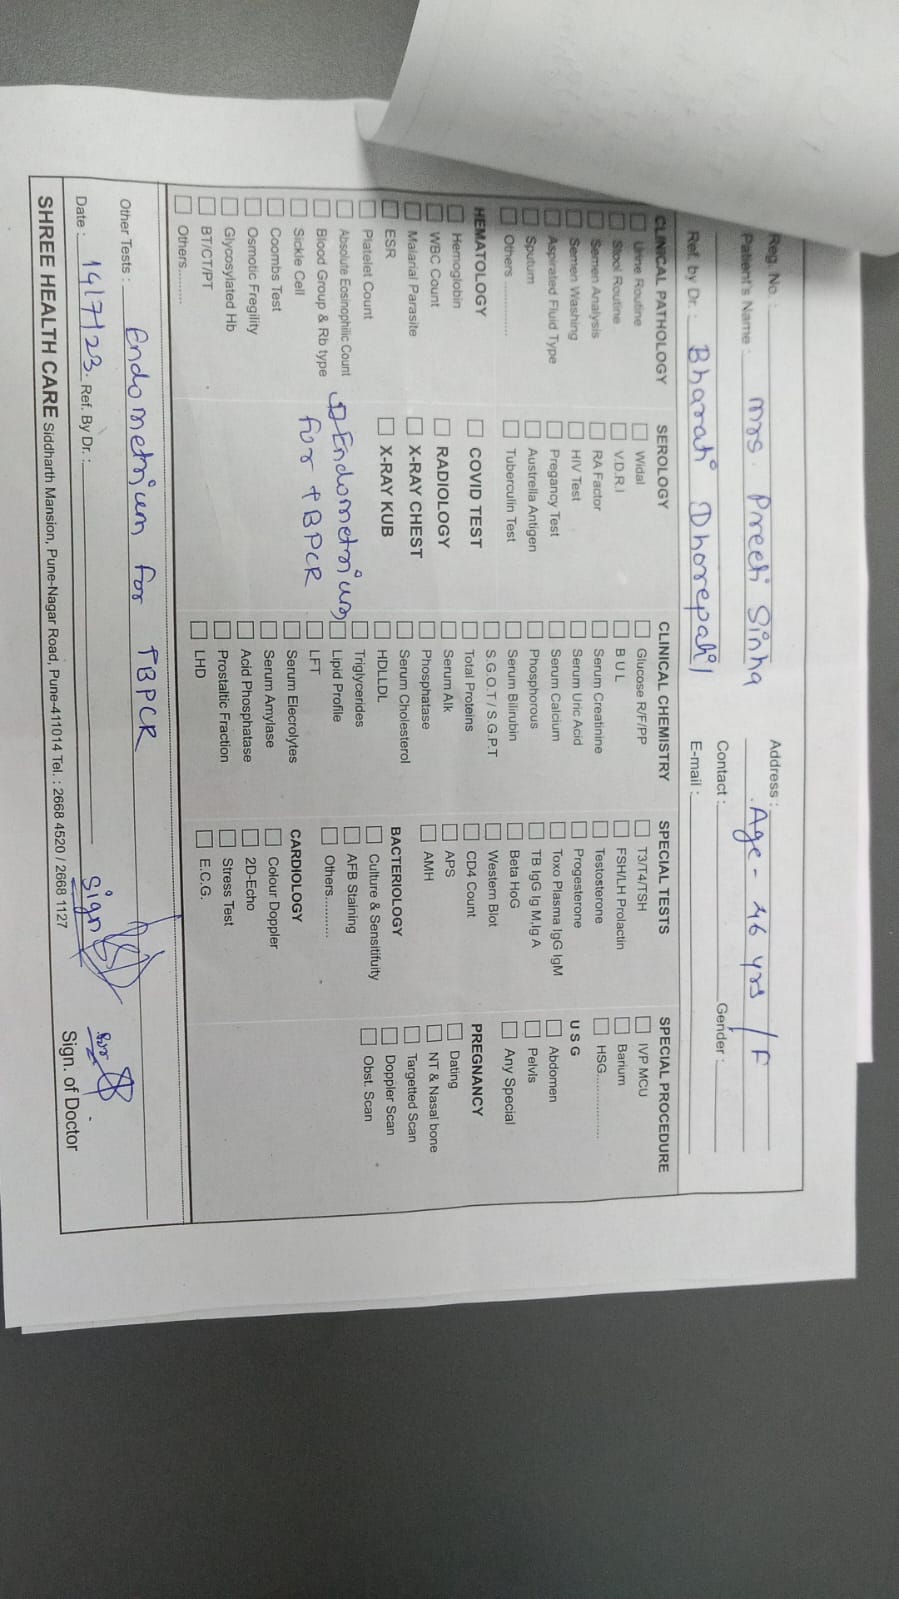 Reg. No. :
Patient's Name : Mrs. Preeti Sinha
Address :
Age - 46 yrs / F
Contact :
Gender :
Ref. by Dr. : Bharati Dhorepatil
E-mail :
CLINICAL PATHOLOGY
Urine Routine
Stool Routine
Semen Analysis
Semen Washing
Aspirated Fluid Type
Sputum
Others ............
HEMATOLOGY
Hemoglobin
WBC Count
Malarial Parasite
ESR
Platelet Count
Absolute Eosinophilic Count
Blood Group & Rb type
Sickle Cell
Coombs Test
Osmotic Fregility
Glycosylated Hb
BT/CT/PT
Others..........
SEROLOGY
Widal
V.D.R.I
RA Factor
HIV Test
Pregancy Test
Austrella Antigen
Tuberculin Test
COVID TEST
RADIOLOGY
X-RAY CHEST
X-RAY KUB
Endometrium
for TBPCR
CLINICAL CHEMISTRY
Glucose R/F/PP
B U L
Serum Creatinine
Serum Uric Acid
Serum Calcium
Phosphorous
Serum Bilirubin
S.G.O.T / S.G.P.T
Total Proteins
Serum Alk
Phosphatase
Serum Cholesterol
HDLLDL
Triglycerides
Lipid Profile
LFT
Serum Elecrolytes
Serum Amylase
Acid Phosphatase
Prostaltic Fraction
LHD
SPECIAL TESTS
T3/T4/TSH
FSH/LH Prolactin
Testosterone
Progesterone
Toxo Plasma IgG IgM
TB IgG Ig M.Ig A
Beta HoG
Western Blot
CD4 Count
APS
AMH
BACTERIOLOGY
Culture & Sensitifuity
AFB Staining
Others..........
CARDIOLOGY
Colour Doppler
2D-Echo
Stress Test
E.C.G.
SPECIAL PROCEDURE
IVP MCU
Barium
HSG...............
U S G
Abdomen
Pelvis
Any Special
PREGNANCY
Dating
NT & Nasal bone
Targetted Scan
Doppler Scan
Obst. Scan
Other Tests : Endometrium for TBPCR
Date : 14/7/23. Ref. By Dr. :
Sign
for
Sign. of Doctor
SHREE HEALTH CARE Siddharth Mansion, Pune-Nagar Road, Pune-411014 Tel. : 2668 4520 / 2668 1127